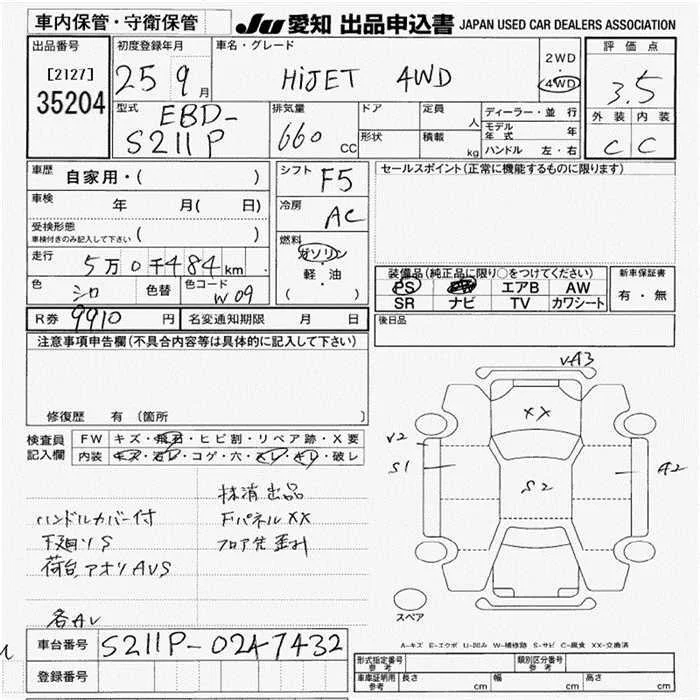 車内保管・守衛保管
JU 愛知 出品申込書 JAPAN USED CAR DEALERS ASSOCIATION
出品番号
[2127]
35204
初度登録年月
25 9月
車名・グレード
HiJET 4WD
2WD
4WD
評価点
3.5
外装 内装
C C
型式
EBD-
S211P
排気量
660 CC
ドア
形状
定員 人
積載 kg
ディーラー・並行
モデル年式 年
ハンドル 左・右
車歴 自家用・( )
車検 年 月( 日)
受検形態
車検付きのみ記入して下さい ( )
走行 5万0千484km
色 シロ 色替 色コード W09
シフト F5
冷房 AC
燃料
ガソリン
・
軽・油
( )
セールスポイント(正常に機能するものに限ります)
装備品(純正品に限り○をつけてください)
PS エアB AW
SR ナビ TV カワシート
新車保証書
有・無
R券 9910円 名変通知期限 月 日
後日品
注意事項申告欄(不具合内容等は具体的に記入して下さい)
修復歴 有(箇所 )
検査員
記入欄
FW キズ・飛石・ヒビ割・リペア跡・X要
内装 キズ・汚レ・コゲ・穴・スレ・キレ・破レ
抹消出品
ハンドルカバー付 FパネルXX
下廻りS フロア先歪み
荷台、アオリAVS
各AV
VA3
XX
V2
S1
S2
A2
スペア
A-キズ E-エクボ U-凹み W-補修跡 S-サビ C-腐食 XX-交換済
車台番号 S211P-0247432
登録番号
形式指定番号
参考
類別区分番号
参考
車庫証明用
参考
長さ cm 幅 cm 高さ cm